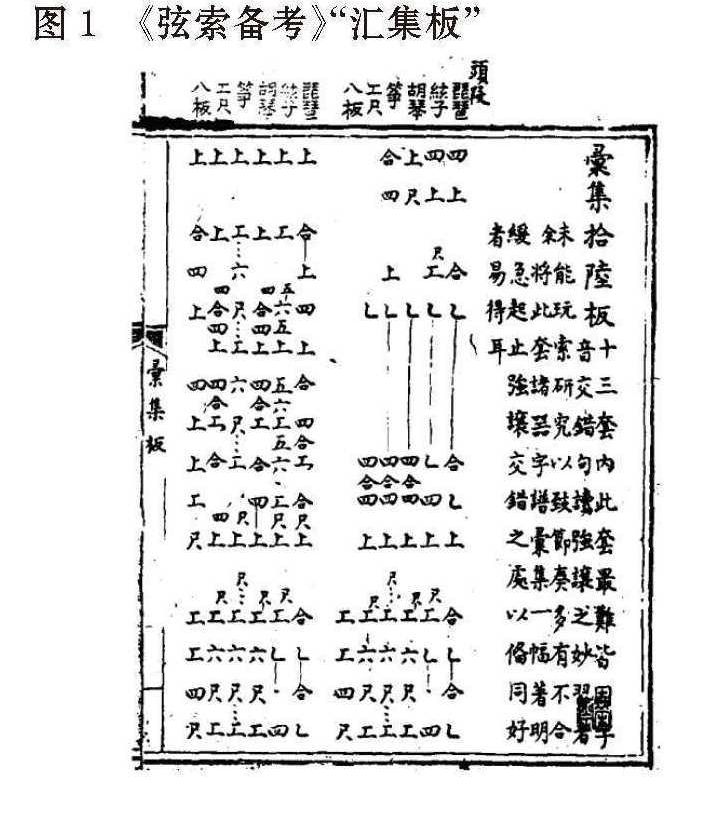 图1 《弦索备考》“汇集板”
彙集拾陸板
十三套内此套最難皆字
音交錯句讀強讓之妙習者
未能玩索研究以致節奏多有不合
余将此套諸器字譜彙集一幅著明
緩急起止強讓交錯之處以俻同好
者易得耳
頭段
琵琶 四上合乚合乚上合乚合乚
絃子 四上尺工乚乚四上尺工乚四
胡琴 上尺乚四合四上尺工六尺工
箏 合四上乚四合四上尺工六尺工
工尺 乚四合四上工六尺工
八板 工工四尺
琵琶 上合上四上合四合工合尺上合乚合乚
絃子 上工五六五上五六工五六工尺上尺工乚四
胡琴 上上四合四上四合工合四上尺工六尺工
箏 上工六尺工六尺工尺上尺工六尺工
工尺 上上四合四上四合工合四上尺工六尺工
八板 上合四上四上上工尺工工四尺
彙集板